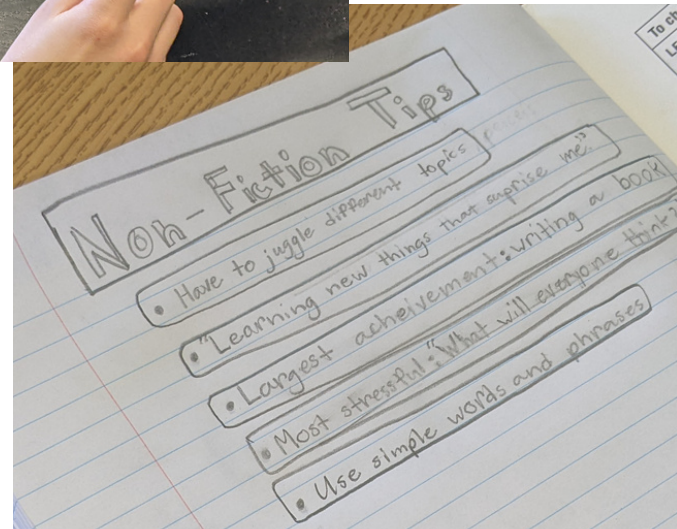 Non-Fiction Tips
• Have to juggle different topics
• "Learning new things that suprise me."
• Largest acheivement: writing a book
• Most stressful: "What will everyone think?
• Use simple words and phrases
To ch
LE